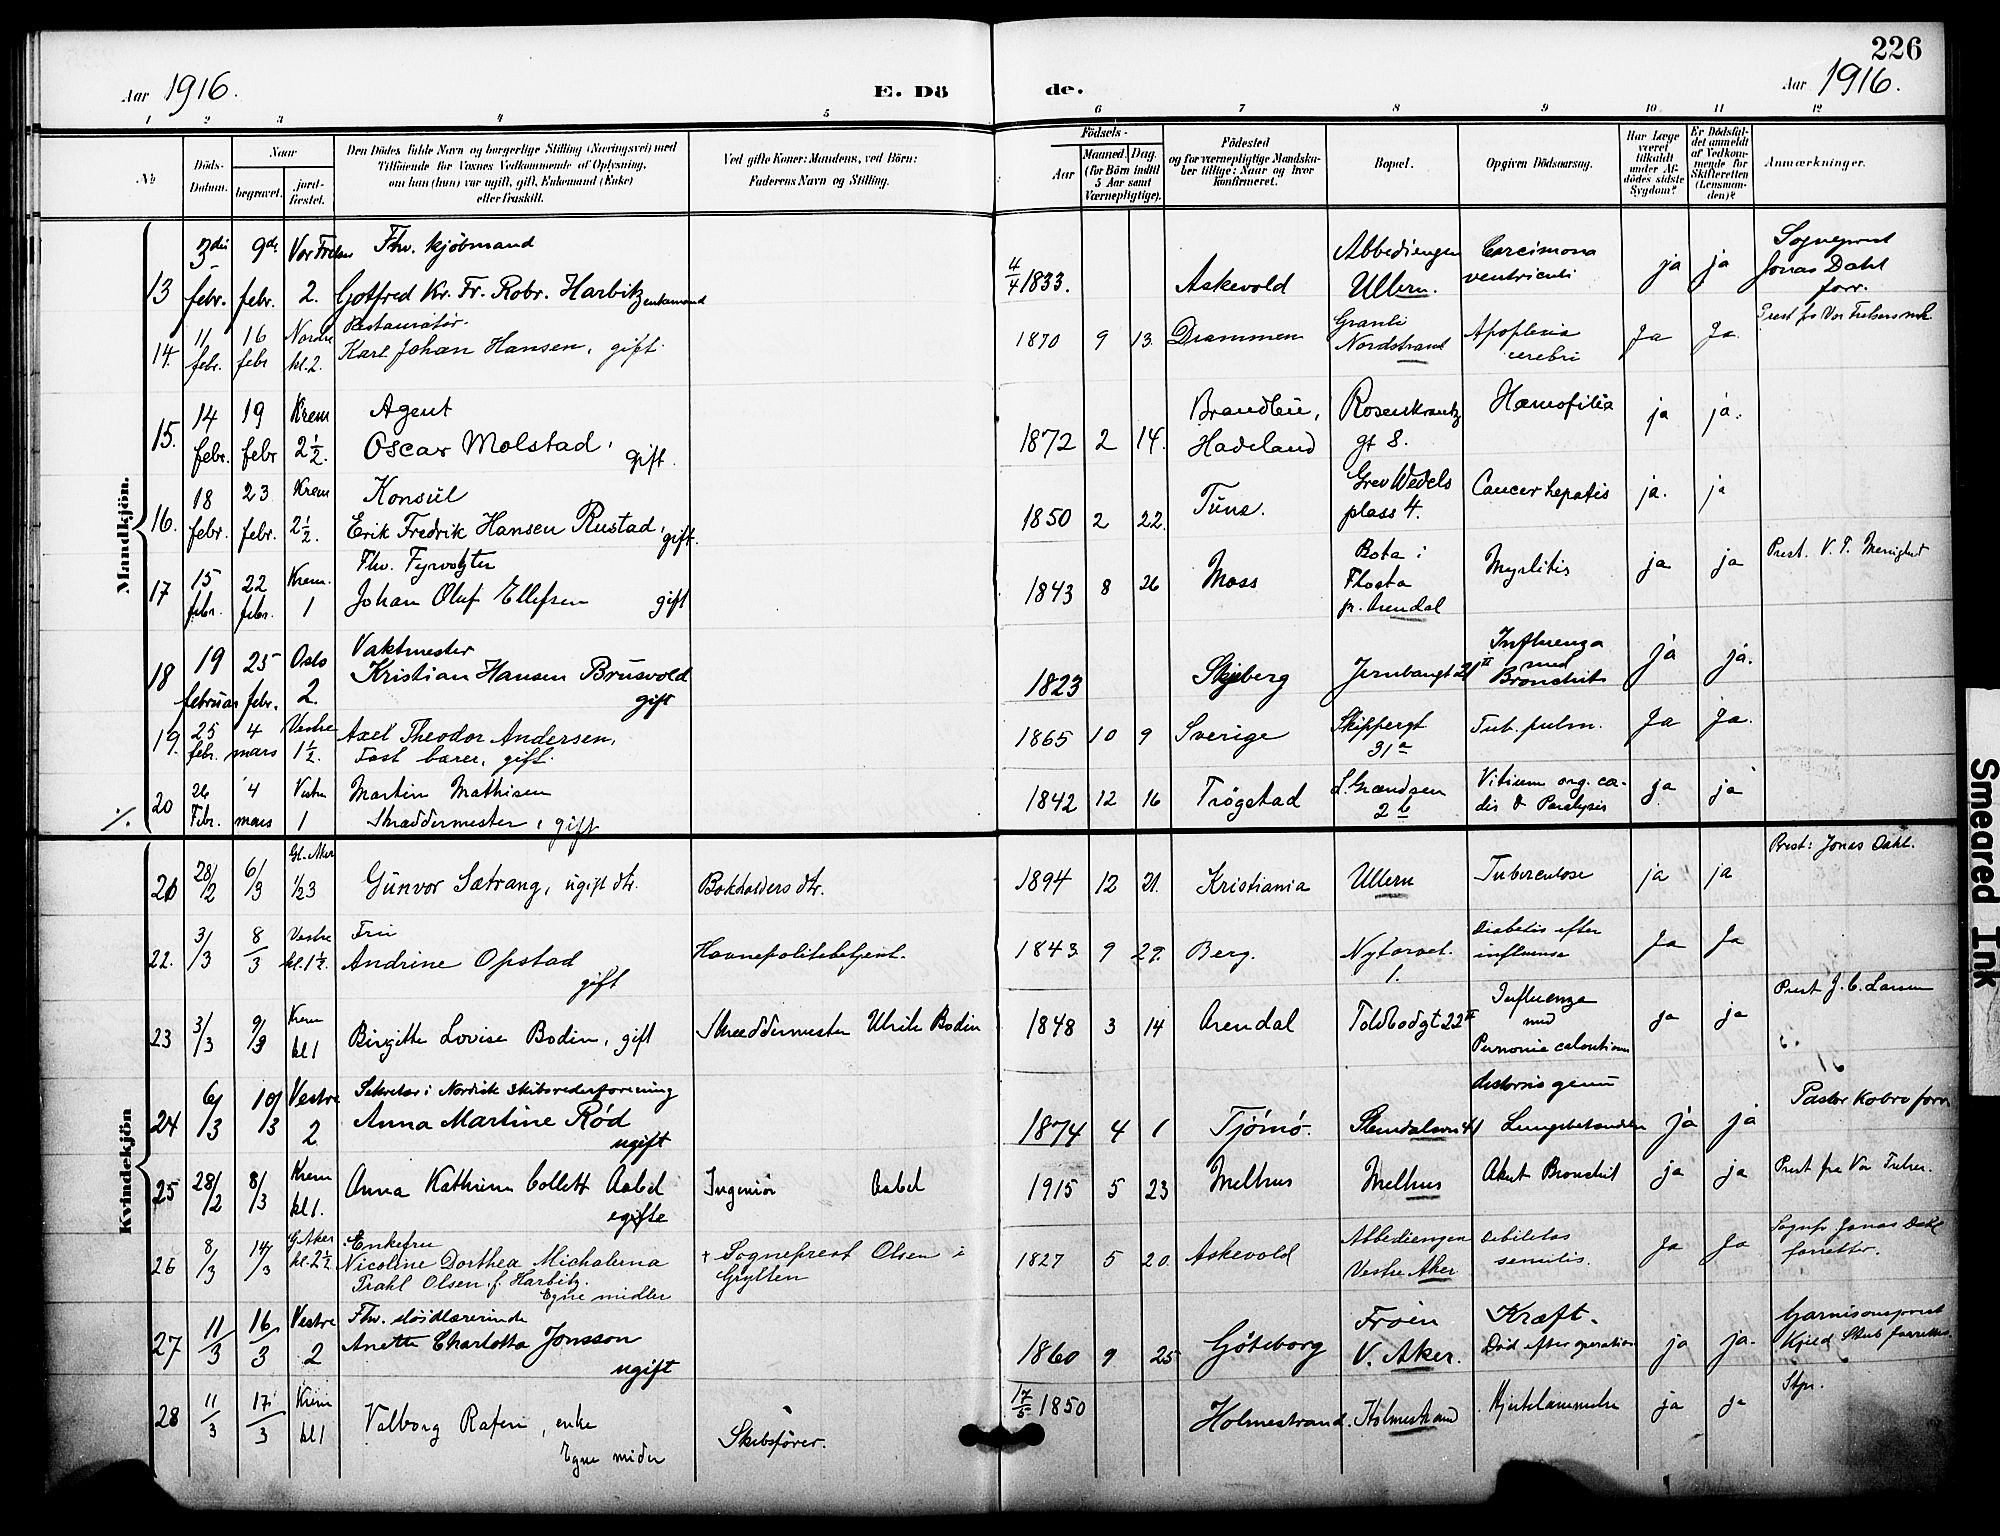 226
Aar 1916.
E. Dö
de.
Aar 1916.
1 2 3 4 5 6 7 8 9 10 11 12
No
Döds-
Datum.
Naar
begravet.
jord-
fæstet.
Den Dödes fulde Navn og borgerlige Stilling (Næringsvei) med
Tilföiende for Voxnes Vedkommende af Oplysning,
om han (hun) var ugift, gift, Enkemand (Enke)
eller fraskilt.
Ved gifte Koner: Mandens, ved Börn:
Faderens Navn og Stilling.
Födsels-
Aar
Maaned. Dag.
(for Börn indtil
5 Aar samt
Værnepligtige).
Födested
og for værnepligtige Mandska-
ber tillige: Naar og hvor
konfirmeret.
Bopæl.
Opgiven Dödsaarsag.
Har Læge
været
tilkaldt
under Af-
dödes sidste
Sygdom?
Er Dödsfal-
det anmeldt
af Vedkom-
mende for
Skifteretten
(Lensman-
den)?
Anmærkninger.
Mandkjön.
13 3die febr. 9de febr. Vor Frelsers 2. Fhv. kjøbmand
Gotfred Kr. Fr. Robr. Harbitz enkemand
4/4 1833. Askevold Abbediengen Ullern. Carcimona ventriculi ja ja Sogneprest Jonas Dahl forr.
14. 11 febr. 16 febr Nordre kl. 2. Restauratør.
Karl Johan Hansen, gift.
1870 9 13. Drammen Granli Nordstrand Apoplexia cerebri Ja Ja. Prest fra Vor Frelsers mk
15. 14 febr. 19 febr Krem 2 1/2. Agent
Oscar Molstad, gift.
1872 2 14. Brandbu, Hadeland Rosenkrantz gt 8. Hæmofilia ja ja.
16. 18 febr. 23 febr. Krem 2 1/2. Konsul
Erik Fredrik Hansen Rustad, gift.
1850 2 22. Tune. Grev Wedels plass 4. Cancer hepatis ja. ja
17 15 febr. 22 febr. Krem. 1 Fhv. Fyrvogter
Johan Oluf Ellefsen gift
1843 8 26 Moss Bota i Flosta pr. Arendal Myelitis ja ja Prest. V. F. Menighet
18 19 februar 25 febr. Oslo 2. Vaktmester
Kristian Hansen Brusvold
gift
1823 Skjeberg Jernbanegt 21 II Influenza med Bronchit ja ja.
19. 25 febr. 4 mars Vestre 1 1/2. Axel Theodor Andersen,
Fast bærer, gift.
1865 10 9 Sverige Skippergt 31a Tub. pulm. Ja Ja.
20 26 Febr. 4 mars Vestre 1 Martin Mathisen
Skreddermester, gift
1842 12 16 Trøgstad L. Grændsen 2 b Vitium org. co- dis & Paralysis ja ja
Kvindekjön
21 28/2 6/3 Gl. Aker 1/2 3 Gunvor Sætrang, ugift dtr. Bokholders dtr.
1894 12 21. Kristiania Ullern Tuberculose ja ja Prest: Jonas Dahl.
22. 3/3 8/3 Vestre kl. 1 1/2. Fru
Andrine Opstad
gift
Havnepolitibetjent.
1843. 9 29. Berg. Nytorvet 1. Diabetis efter influensa Ja Ja
23 3/3 9/3 Krem kl 1 Birgitte Lovise Bodin, gift Skreddermester Ulrik Bodin
1848 3 14 Arendal Toldbodgt 22 II Influenza med ja ja Prest J. C. Larsen
24 6/3 10/3 Vestre 2 Sekretær i Nordisk Skibsrederforening
Anna Martine Rød
ugift
1874 4 1 Tjømø. ja ja Pastor Kobro forr
25 28/2 8/3 Krem kl 1. Anna Kathrine Collett Aabel
Ingeniør Aabel
1915 5 23 Melhus Melhus Akut Bronchit ja ja Prest fra Vor Frelser.
26 8/3 14/3 G. Aker kl. 2 1/2 Enkefru
Nicoline Dorthea Michalena
Olsen, f. Harbitz.
Egne midler
+ Sogneprest Olsen i
Grytten
1827 5 20. Askevold Abbediengen Vestre Aker debilitas senilis. Ja Ja Sognepr. Jonas Dahl forretter.
27 11/3 16/3 Vestre 2 Fhv. sløidlærerinde
Anette Charlotta Jonsson
ugift
1860 9 25 Göteborg Frøen V. Aker. Kræft. Død efter operation ja ja. Garnisonsprest Kjeld Stub forrettes.
28 11/3 17/3 Krem kl 1 Valborg Rafen, enke
Egne midler
Skibsfører.
17/5 1850 Holmestrand. Holmestrand Hjertelammelse ja ja Stpr.
Smeared Ink